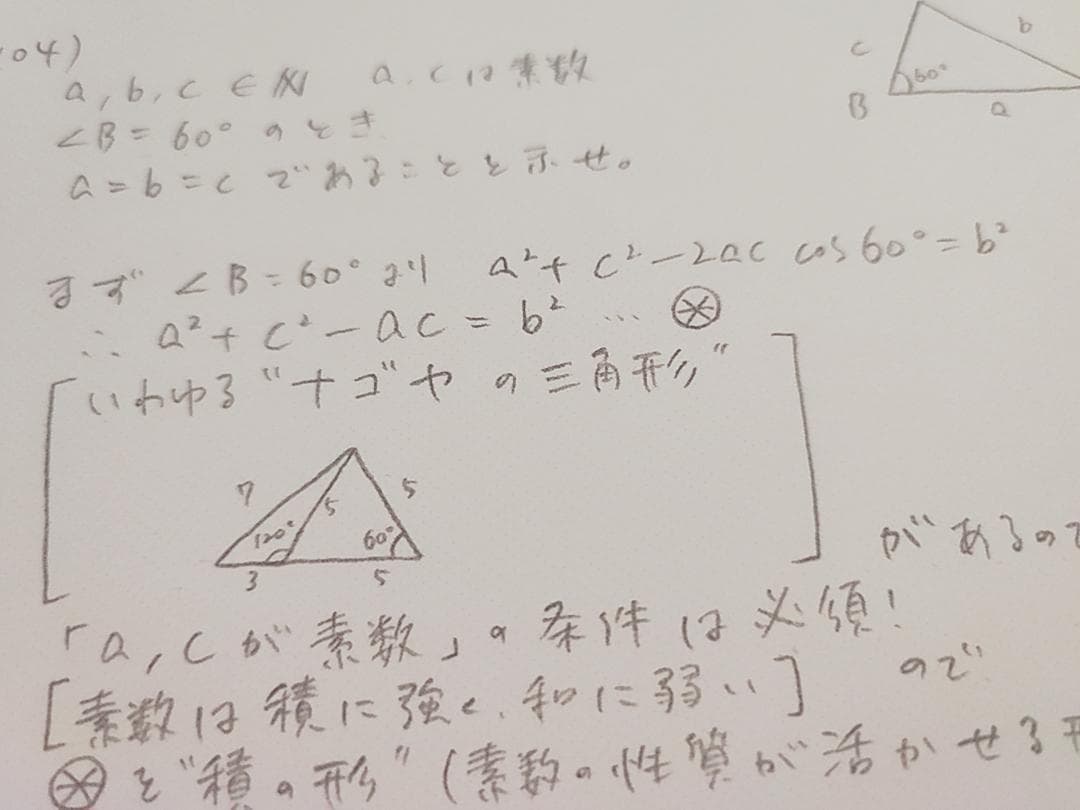 04)
a, b, c ∈ ℕ a, cは素数
∠B = 60° のとき
a = b = c であることを示せ。
c
b
60°
B
a
まず ∠B = 60° より a² + c² − 2ac cos60° = b²
∴ a² + c² − ac = b² … ⊛
いわゆる "ナゴヤの三角形"
7
5
5
120°
60°
3
5
があるので
「a, cが素数」の条件は必須!
[素数は積に強く、和に弱い] ので
⊛を"積の形" (素数の性質が活かせる